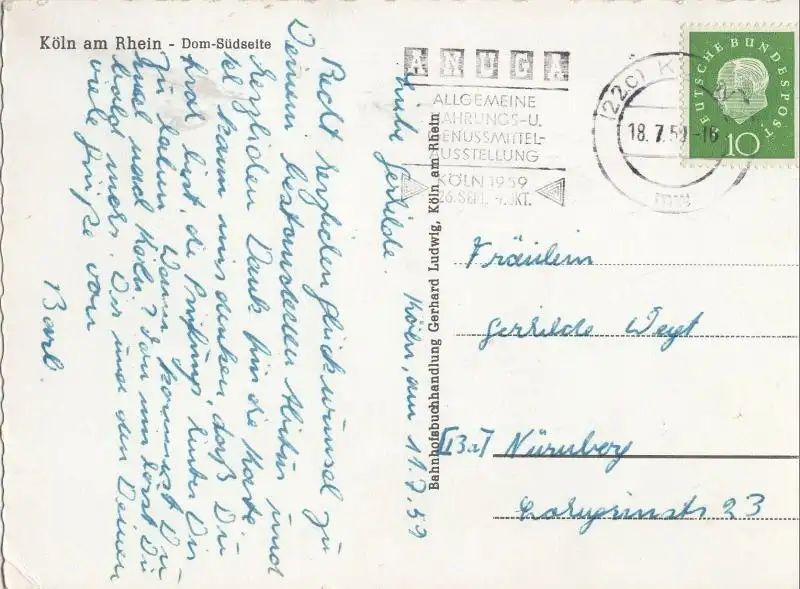 Köln am Rhein - Dom-Südseite
Köln, am 11.7.59
Liebe Gerhilde.
Recht herzlichen Glückwunsch zu
Deinem bestandenen Abitur und
herzlichen Dank für die Karte.
Ich kann mir denken, daß Du
froh bist, die Prüfung hinter Dir
zu haben. Wann kommst Du
mal nach Köln? Von mir hörst Du
bald mehr. Dir und den Deinen
viele Grüße von
Barb.
Bahnhofsbuchhandlung Gerhard Ludwig, Köln am Rhein
ANUGA
ALLGEMEINE
NAHRUNGS-U.
GENUSSMITTEL-
AUSSTELLUNG
KÖLN 1959
26. SEPT. -4. OKT.
(22c) K
18.7.59.-16
mw
DEUTSCHE BUNDESPOST
10
Fräulein
Gerhilde Weyt
[13a] Nürnberg
23